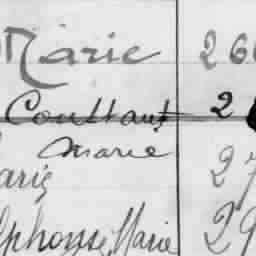 Marie 26
Constant 2
Marie
aris 27
lphonse, Marie 29